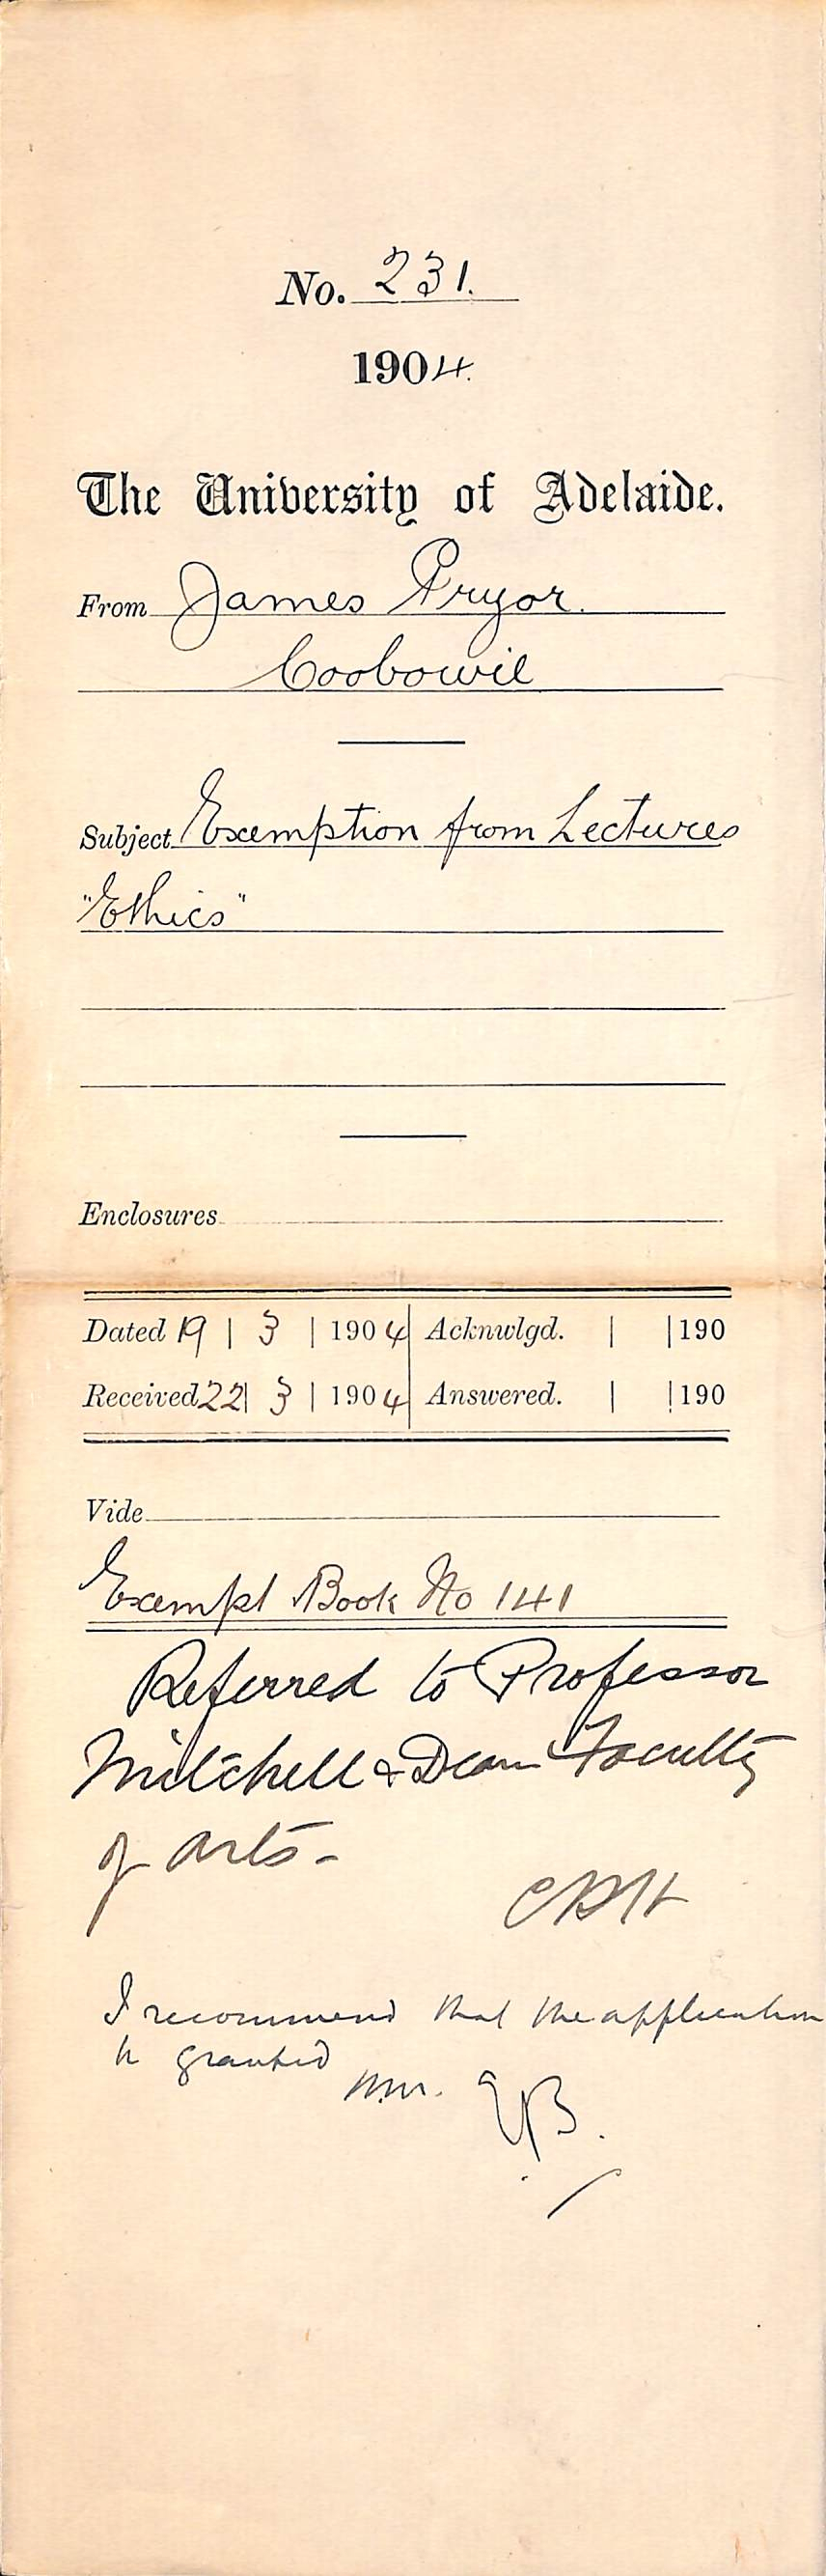 No. 231.
1904.
The University of Adelaide.
From James Pryor.
Coobowie
Subject Exemption from Lectures
"Ethics"
Enclosures
Dated 19 | 3 | 1904 Acknwlgd. | | 190
Received 22 | 3 | 1904 Answered. | | 190
Vide
Exempt Book No 141
Referred to Professor
Mitchell & Dean Faculty
of Arts -
CRH
I recommend that the application
be granted
W.M. EVB.